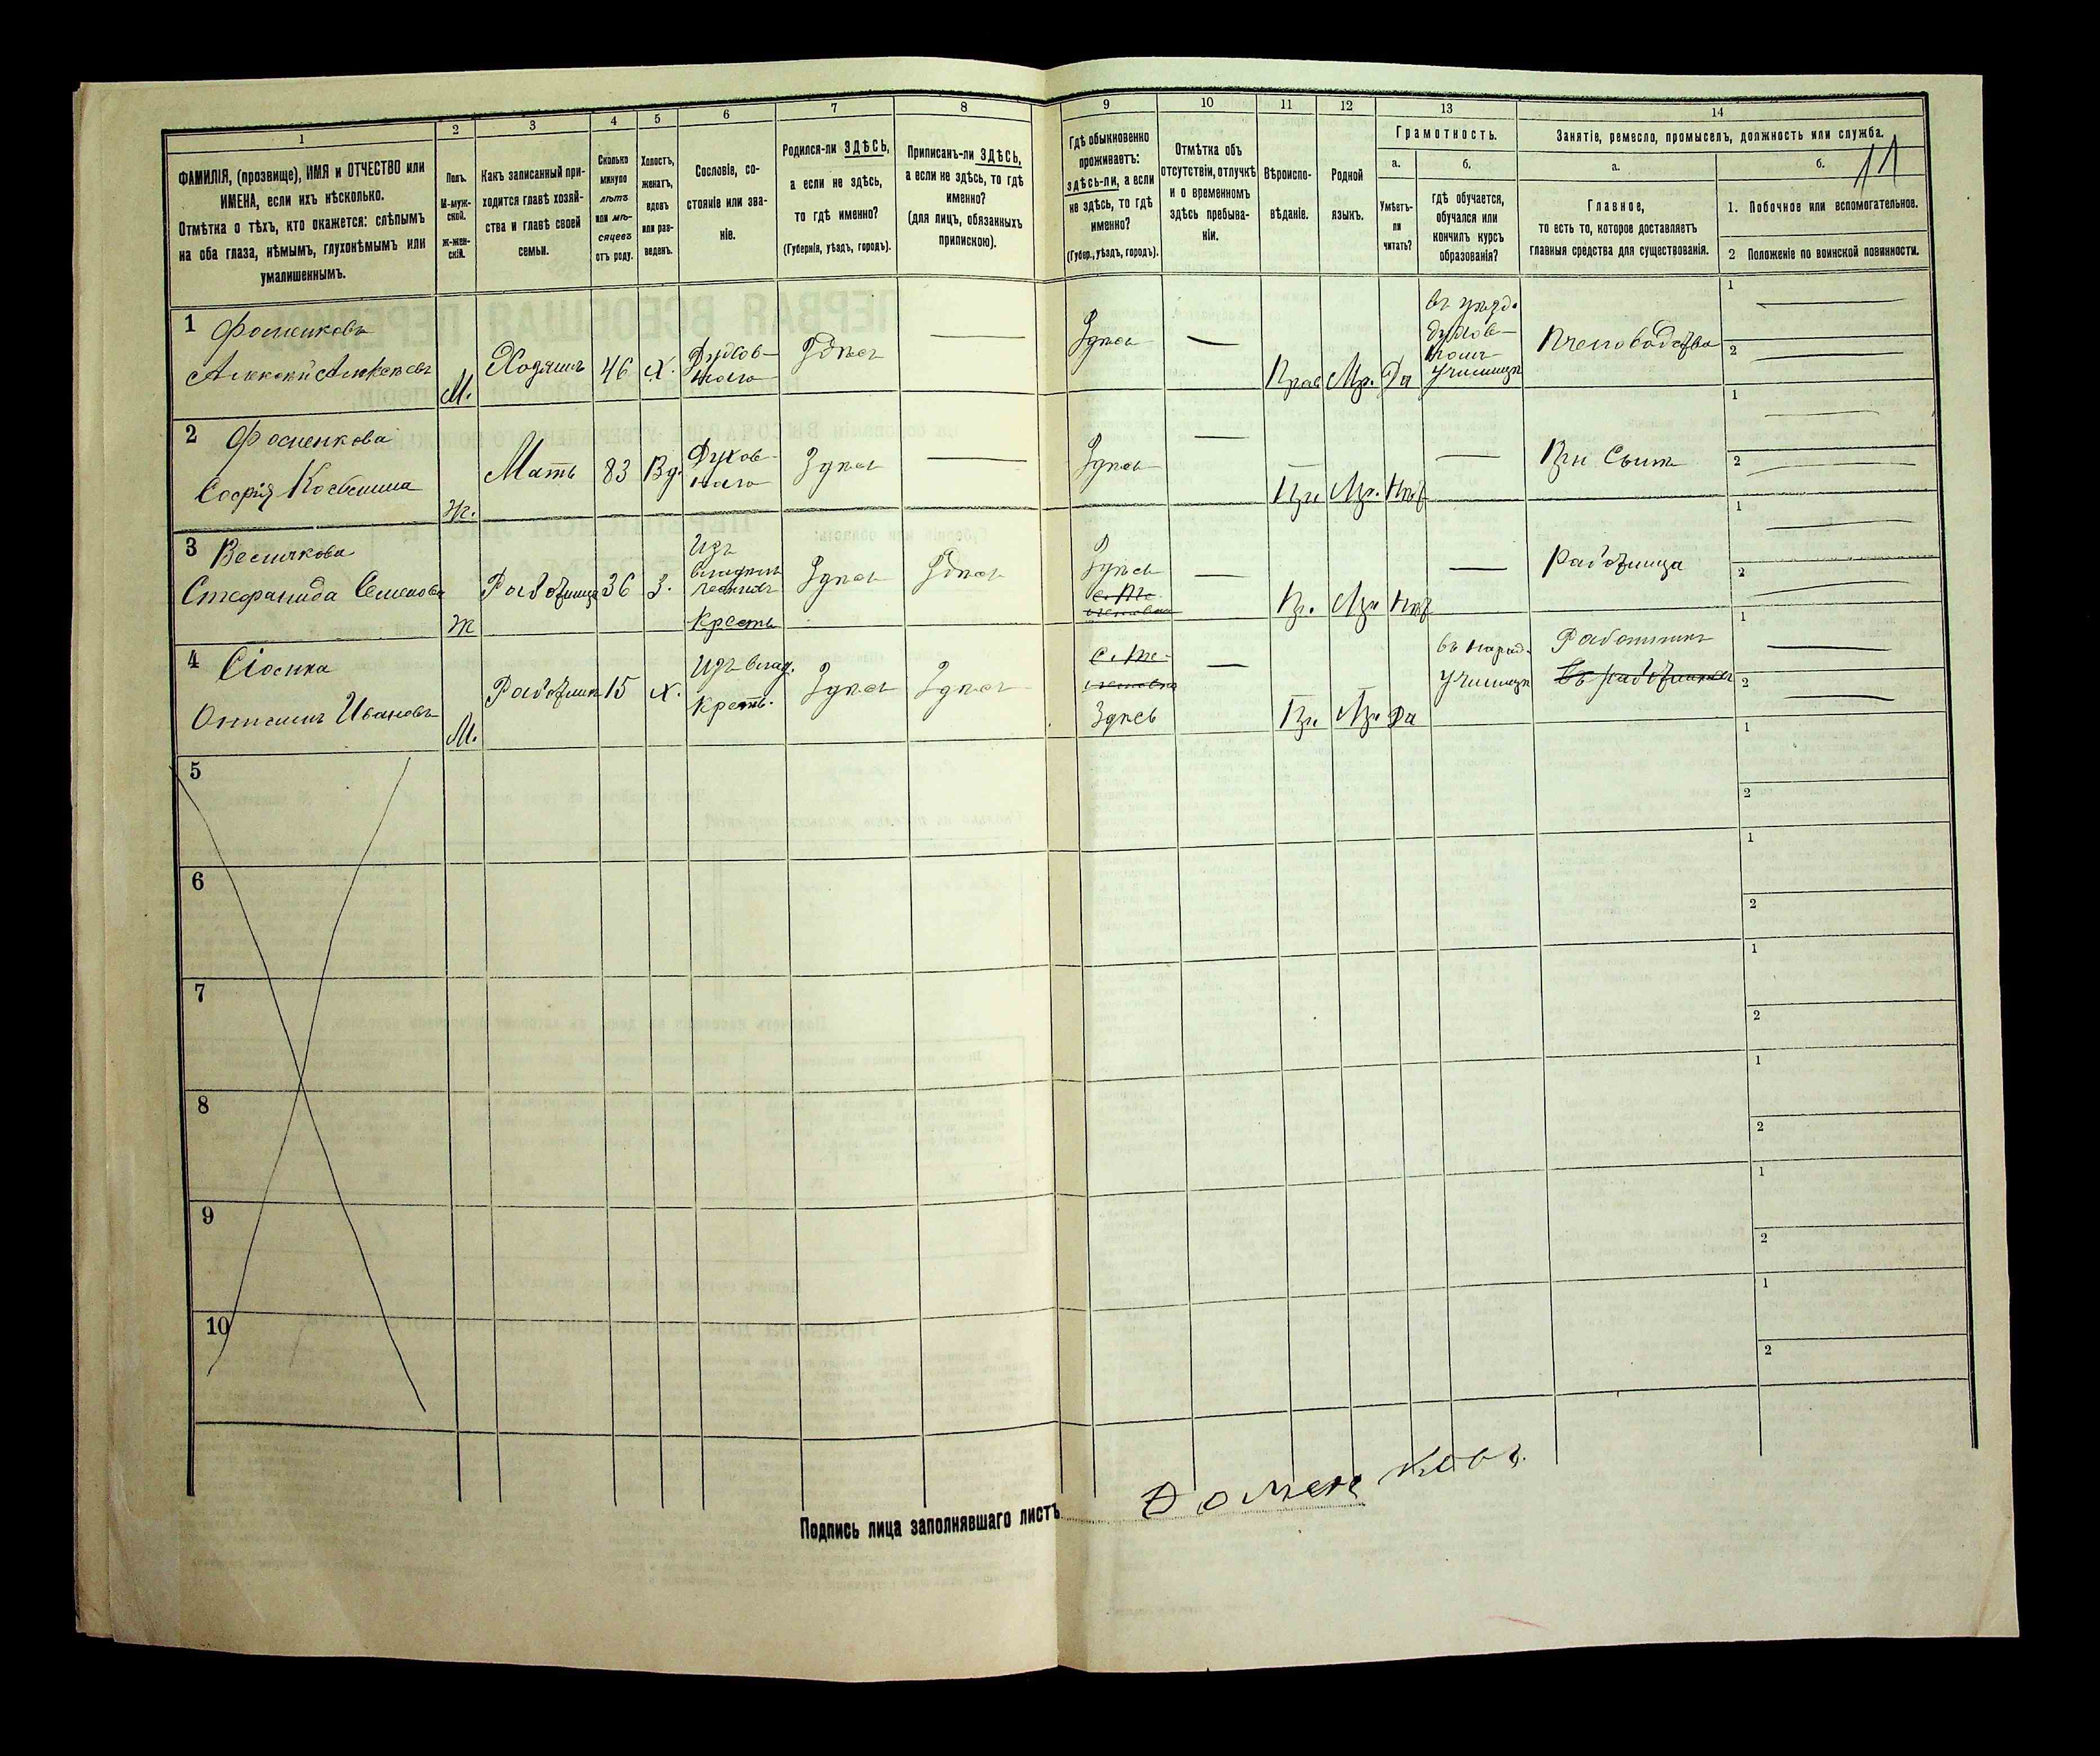 1
2
3
4
5
6
7
8
9
10
11
12
13
14
ФАМИЛІЯ, (прозвище), ИМЯ и ОТЧЕСТВО или
ИМЕНА, если ихъ нѣсколько.
Отмѣтка о тѣхъ, кто окажется: слѣпымъ
на оба глаза, нѣмымъ, глухонѣмымъ или
умалишеннымъ.
Полъ.
М-муж-
ской.
ж-жен-
скій.
Какъ записанный при-
ходится главѣ хозяй-
ства и главѣ своей
семьи.
Сколько
минуло
лѣтъ
или мѣ-
сяцевъ
отъ роду.
Холостъ,
женатъ,
вдовъ
или раз-
веденъ.
Сословіе, со-
стояніе или зва-
ніе.
Родился-ли ЗДѢСЬ,
а если не здѣсь,
то гдѣ именно?
(Губернія, уѣздъ, городъ).
Приписанъ-ли ЗДѢСЬ,
а если не здѣсь, то гдѣ
именно?
(для лицъ, обязанныхъ
припискою).
Гдѣ обыкновенно
проживаетъ:
здѣсь-ли, а если
не здѣсь, то гдѣ
именно?
(Губер., уѣздъ, городъ).
Отмѣтка объ
отсутствіи, отлучкѣ
и о временномъ
здѣсь пребыва-
ніи.
Вѣроиспо-
вѣданіе.
Родной
языкъ.
Грамотность.
а.
Умѣетъ-
ли
читать?
б.
гдѣ обучается,
обучался или
кончилъ курсъ
образованія?
Занятіе, ремесло, промыселъ, должность или служба.
11
а.
Главное,
то есть то, которое доставляетъ
главныя средства для существованія.
б.
1. Побочное или вспомогательное.
2 Положеніе по воинской повинности.
1 Фоменковъ
Алексѣй Алексѣевъ
М.
Хозяинъ
46
х.
Духов-
наго
Здѣсь
Здѣсь
Прав
Мр.
Да
въ уѣзд.
духов-
номъ
училищѣ
Пчеловодство
1
2
2 Фоменкова
Софія Косьмина
Ж.
Мать
83
Вд.
Духов-
наго
Здѣсь
Здѣсь
Пр.
Мр.
Нѣт
При сынѣ
1
2
3 Величкова
Стефанида Семенова
Ж
Работница
36
З.
Изъ
владѣль
ческихъ
крестъ
Здѣсь
Здѣсь
Здѣсь
Пр.
Мр.
Нѣт
Работница
1
2
4 Сіосика
Онисимъ Ивановъ
М.
Работникъ
15
х.
Изъ влад.
Крестъ.
Здѣсь
Здѣсь
Здѣсь
Пр.
Мр.
Да
въ народ.
училищѣ
Работникъ
въ работникахъ
1
2
5
1
2
6
1
2
7
1
2
8
1
2
9
1
2
10
1
2
Подпись лица заполнявшаго листъ
Фоменковъ